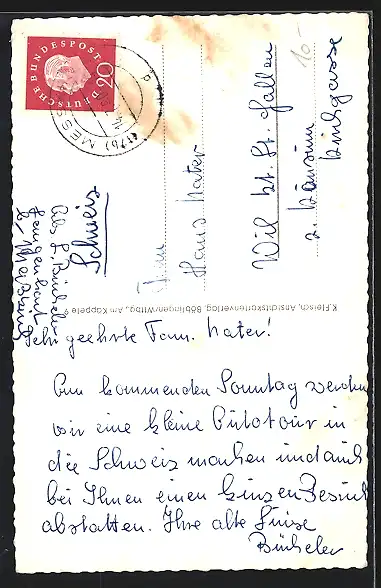 DEUTSCHE BUNDESPOST
20
(17b) MESS
Fam.
Hans Nater
Wil kt. St. Gallen
z. Konsum
Kirchgasse
Schweiz
10-
K.Fleisch, Ansichtskartenverlag, Böblingen/Wttbg., Am Käppele 9
Sehr geehrte Fam. Nater!
Am kommenden Sonntag werden
wir eine kleine Autotour in
die Schweiz machen und auch
bei Ihnen einen kurzen Besuch
abstatten. Ihre alte Luise
Bücheler
Abs. L. Bücheler